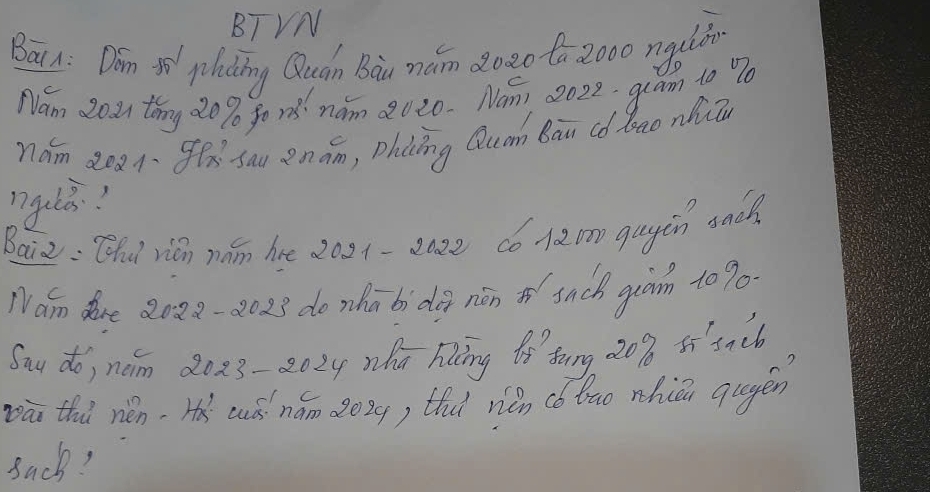 BTVN
Bài 1: Dân số phường Quán Bàu năm 2020 là 2000 người.
Năm 2021 tăng 20% so với năm 2020. Năm 2022 giảm 10%
năm 2021. Hỏi sau 2 năm, phường Quán Bàu có bao nhiêu
người?
Bài 2: Thư viện năm học 2021 - 2022 có 12000 quyển sách.
Năm học 2022 - 2023 do nhà bị dột nên số sách giảm 10%.
Sau đó, năm 2023 - 2024 nhà trường bổ sung 20% số sách
vào thư viện. Hỏi cuối năm 2024, thư viện có bao nhiêu quyển
sách?